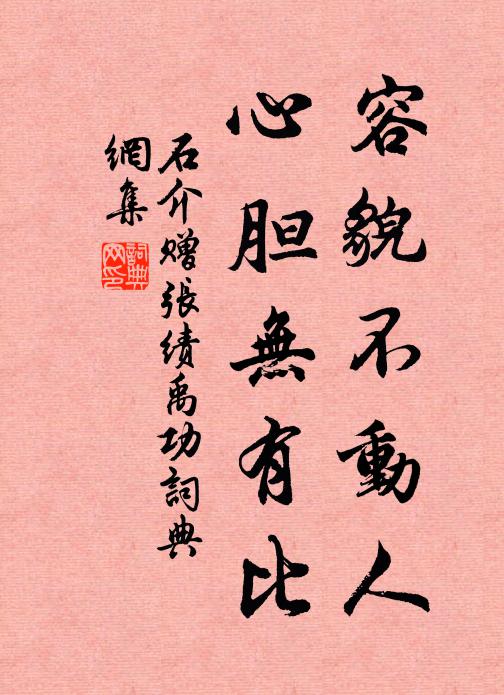 容貌不動人
心胆無有比
石介赠張绩禹功詞典
網集
詞典
网印